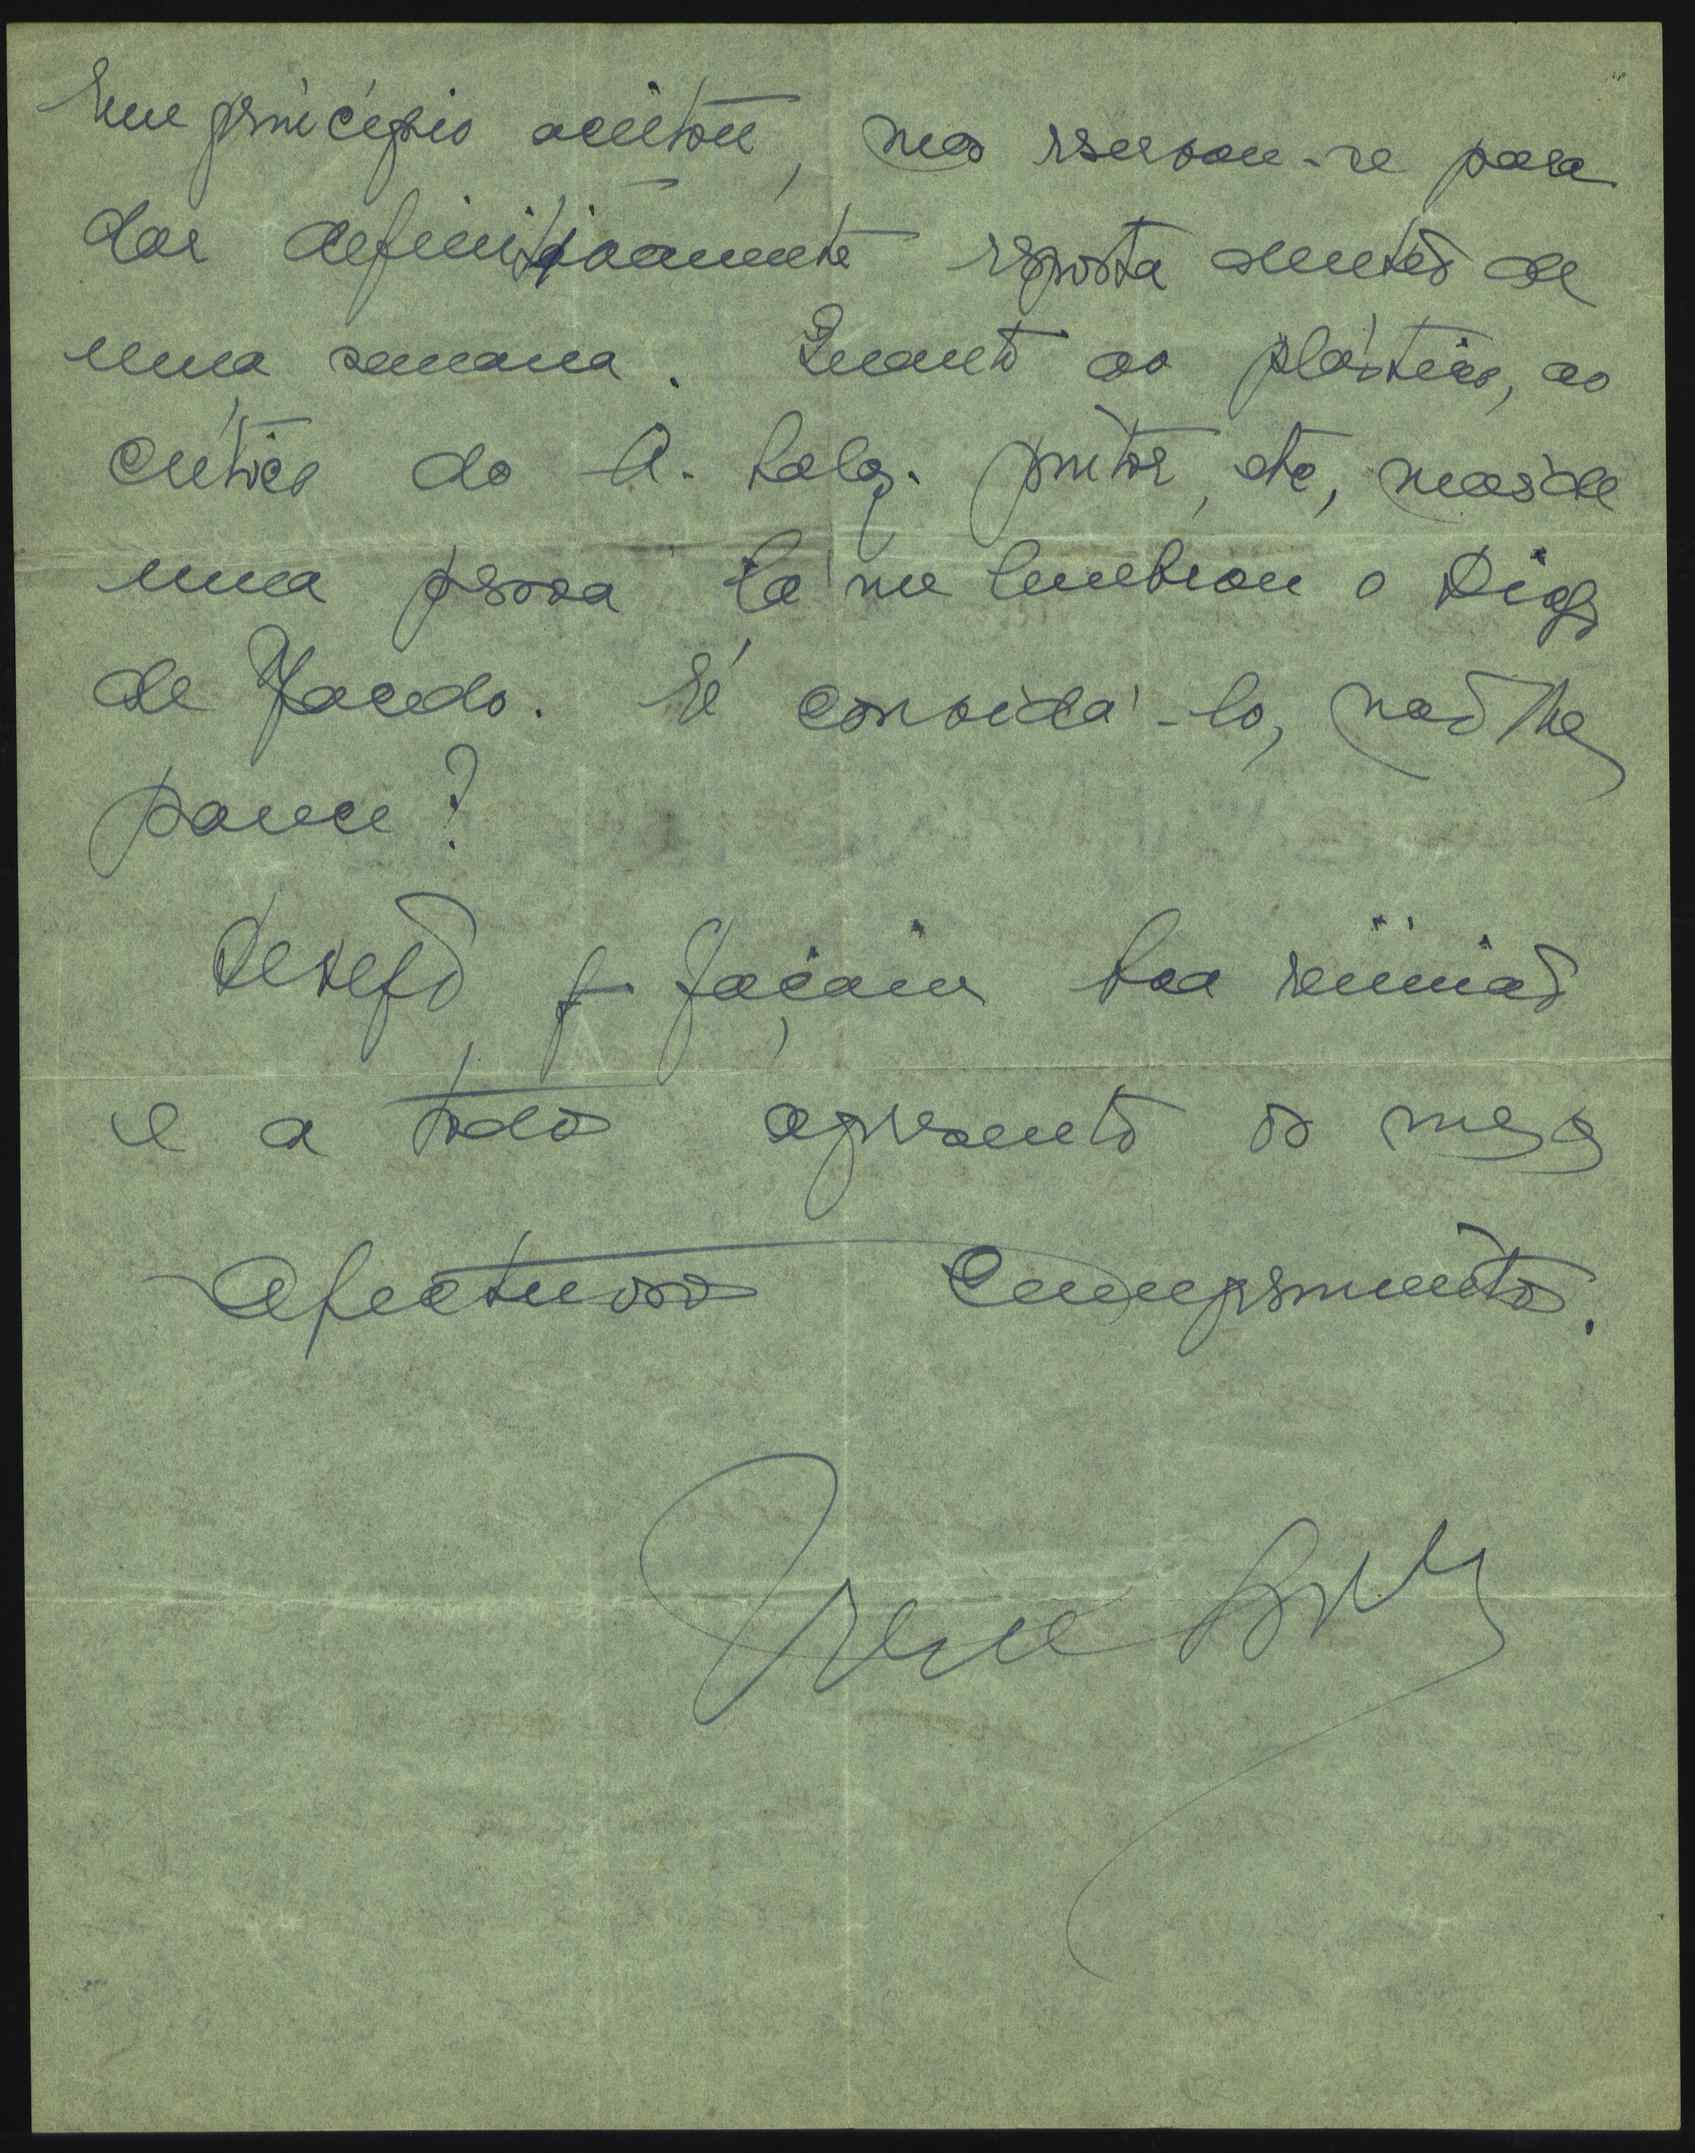 Em princípio aceitou, mas reservou-se para
dar definitivamente resposta dentro de
uma semana. Quanto ao plástico, ao
crítico do A. pintor, etc, mais de
uma pessoa já me lembrou o Diogo
de Macedo. É convidá-lo, não lhe
parece?
Desejo q façam boa reünião
e a todos apresento os meus
afectuosos cumprimentos.
Irene